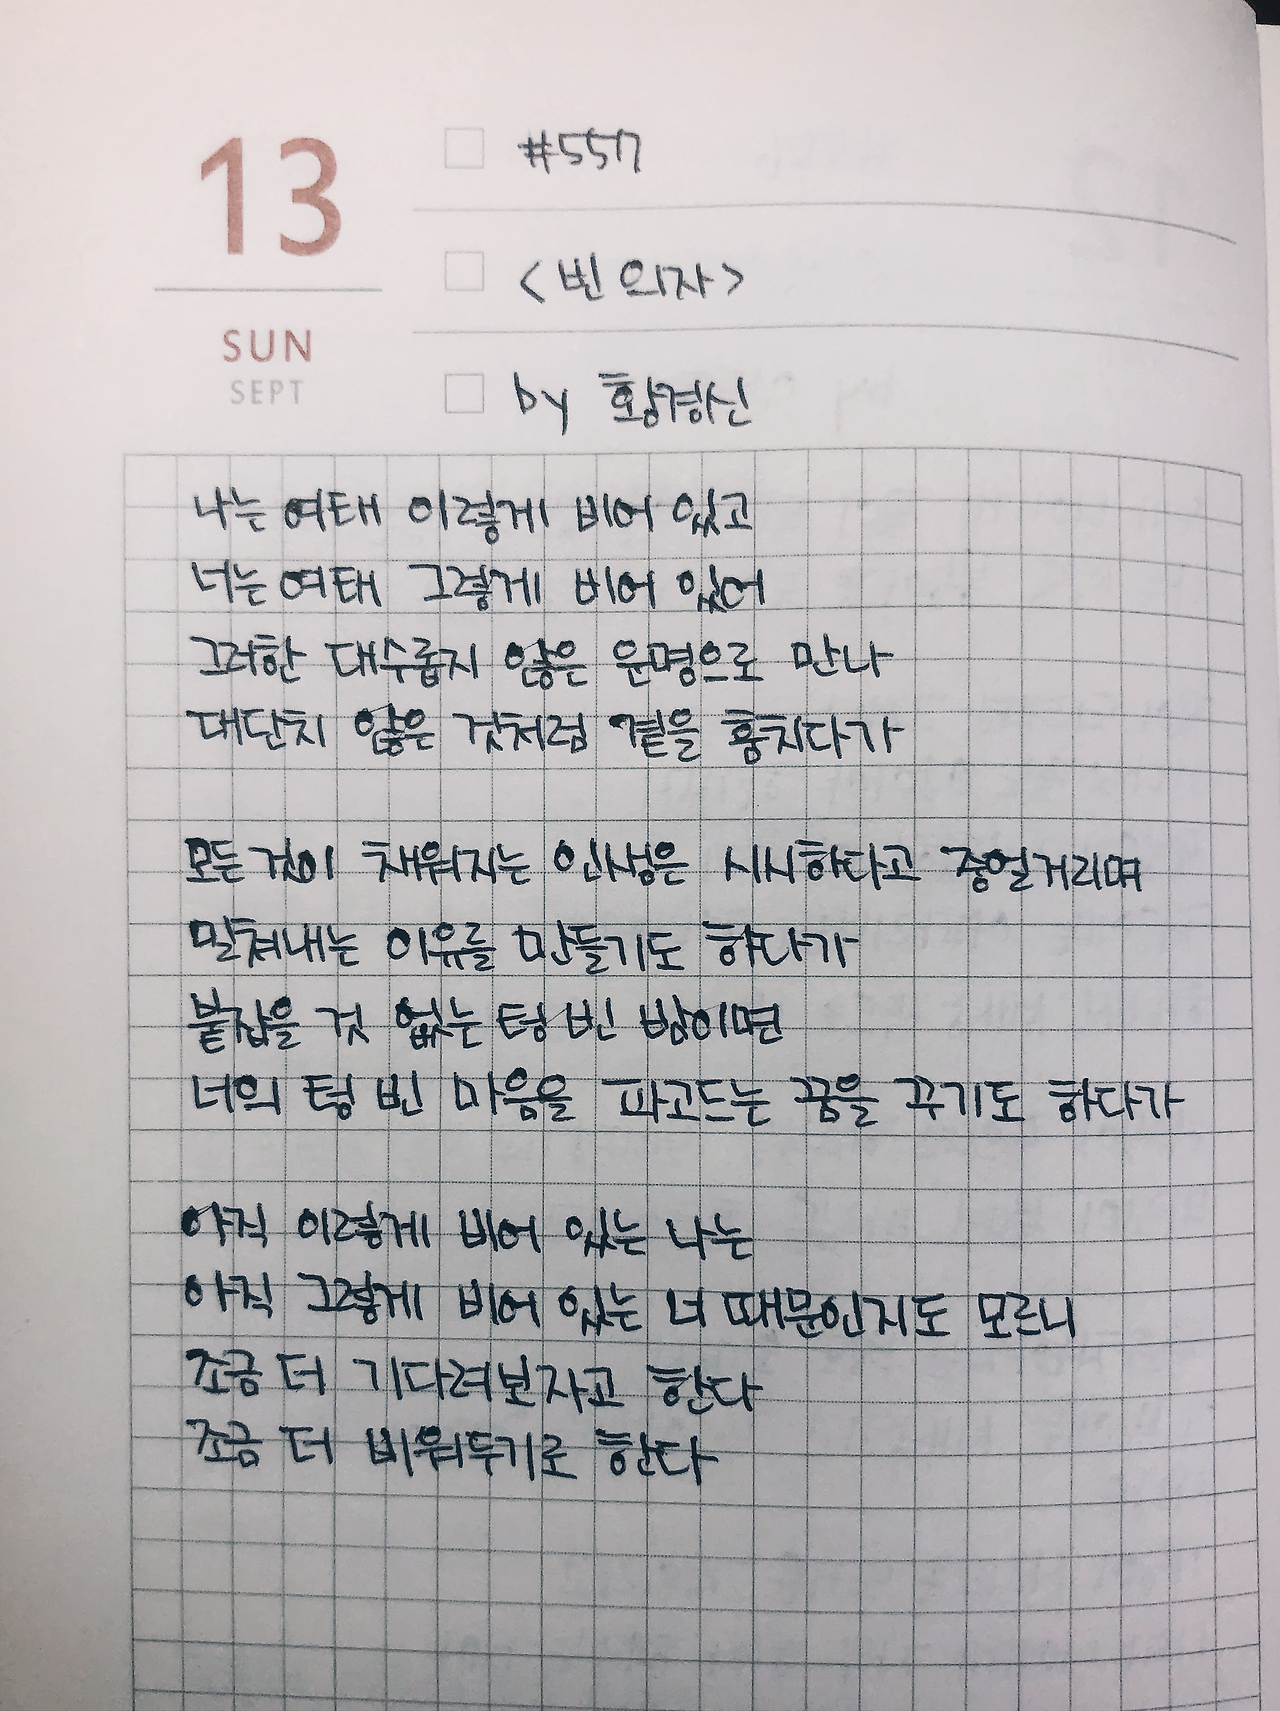 13
SUN
SEPT
#557
<빈 의자>
by 황경신
나는 여태 이렇게 비어 있고
너는 여태 그렇게 비어 있어
그러한 대수롭지 않은 운명으로 만나
대단치 않은 것처럼 곁을 훔치다가
모든 것이 채워지는 인생은 시시하다고 중얼거리며
밀쳐내는 이유를 만들기도 하다가
붙잡을 것 없는 텅 빈 밤이면
너의 텅 빈 마음을 파고드는 꿈을 꾸기도 하다가
아직 이렇게 비어 있는 나는
아직 그렇게 비어 있는 너 때문인지도 모르니
조금 더 기다려보자고 한다
조금 더 비워두기로 한다